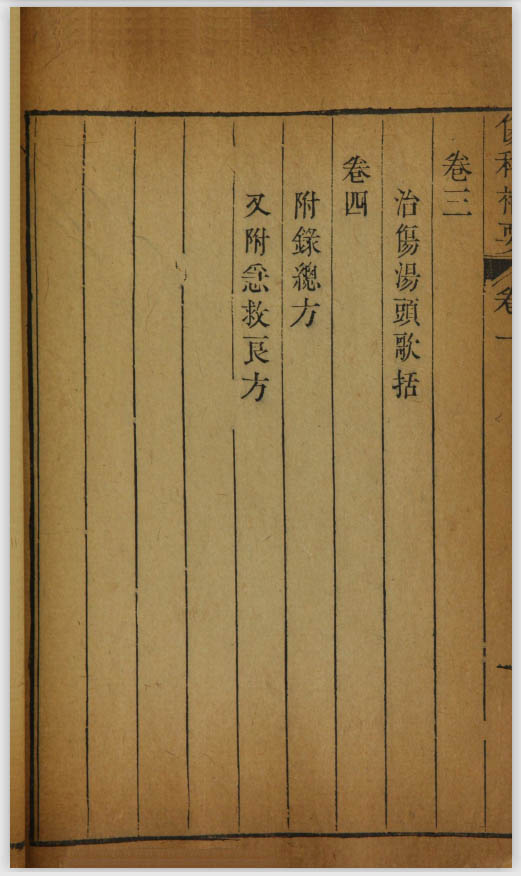 傷科補要
卷一
卷三
治傷湯頭歌括
卷四
附錄總方
又附急救良方